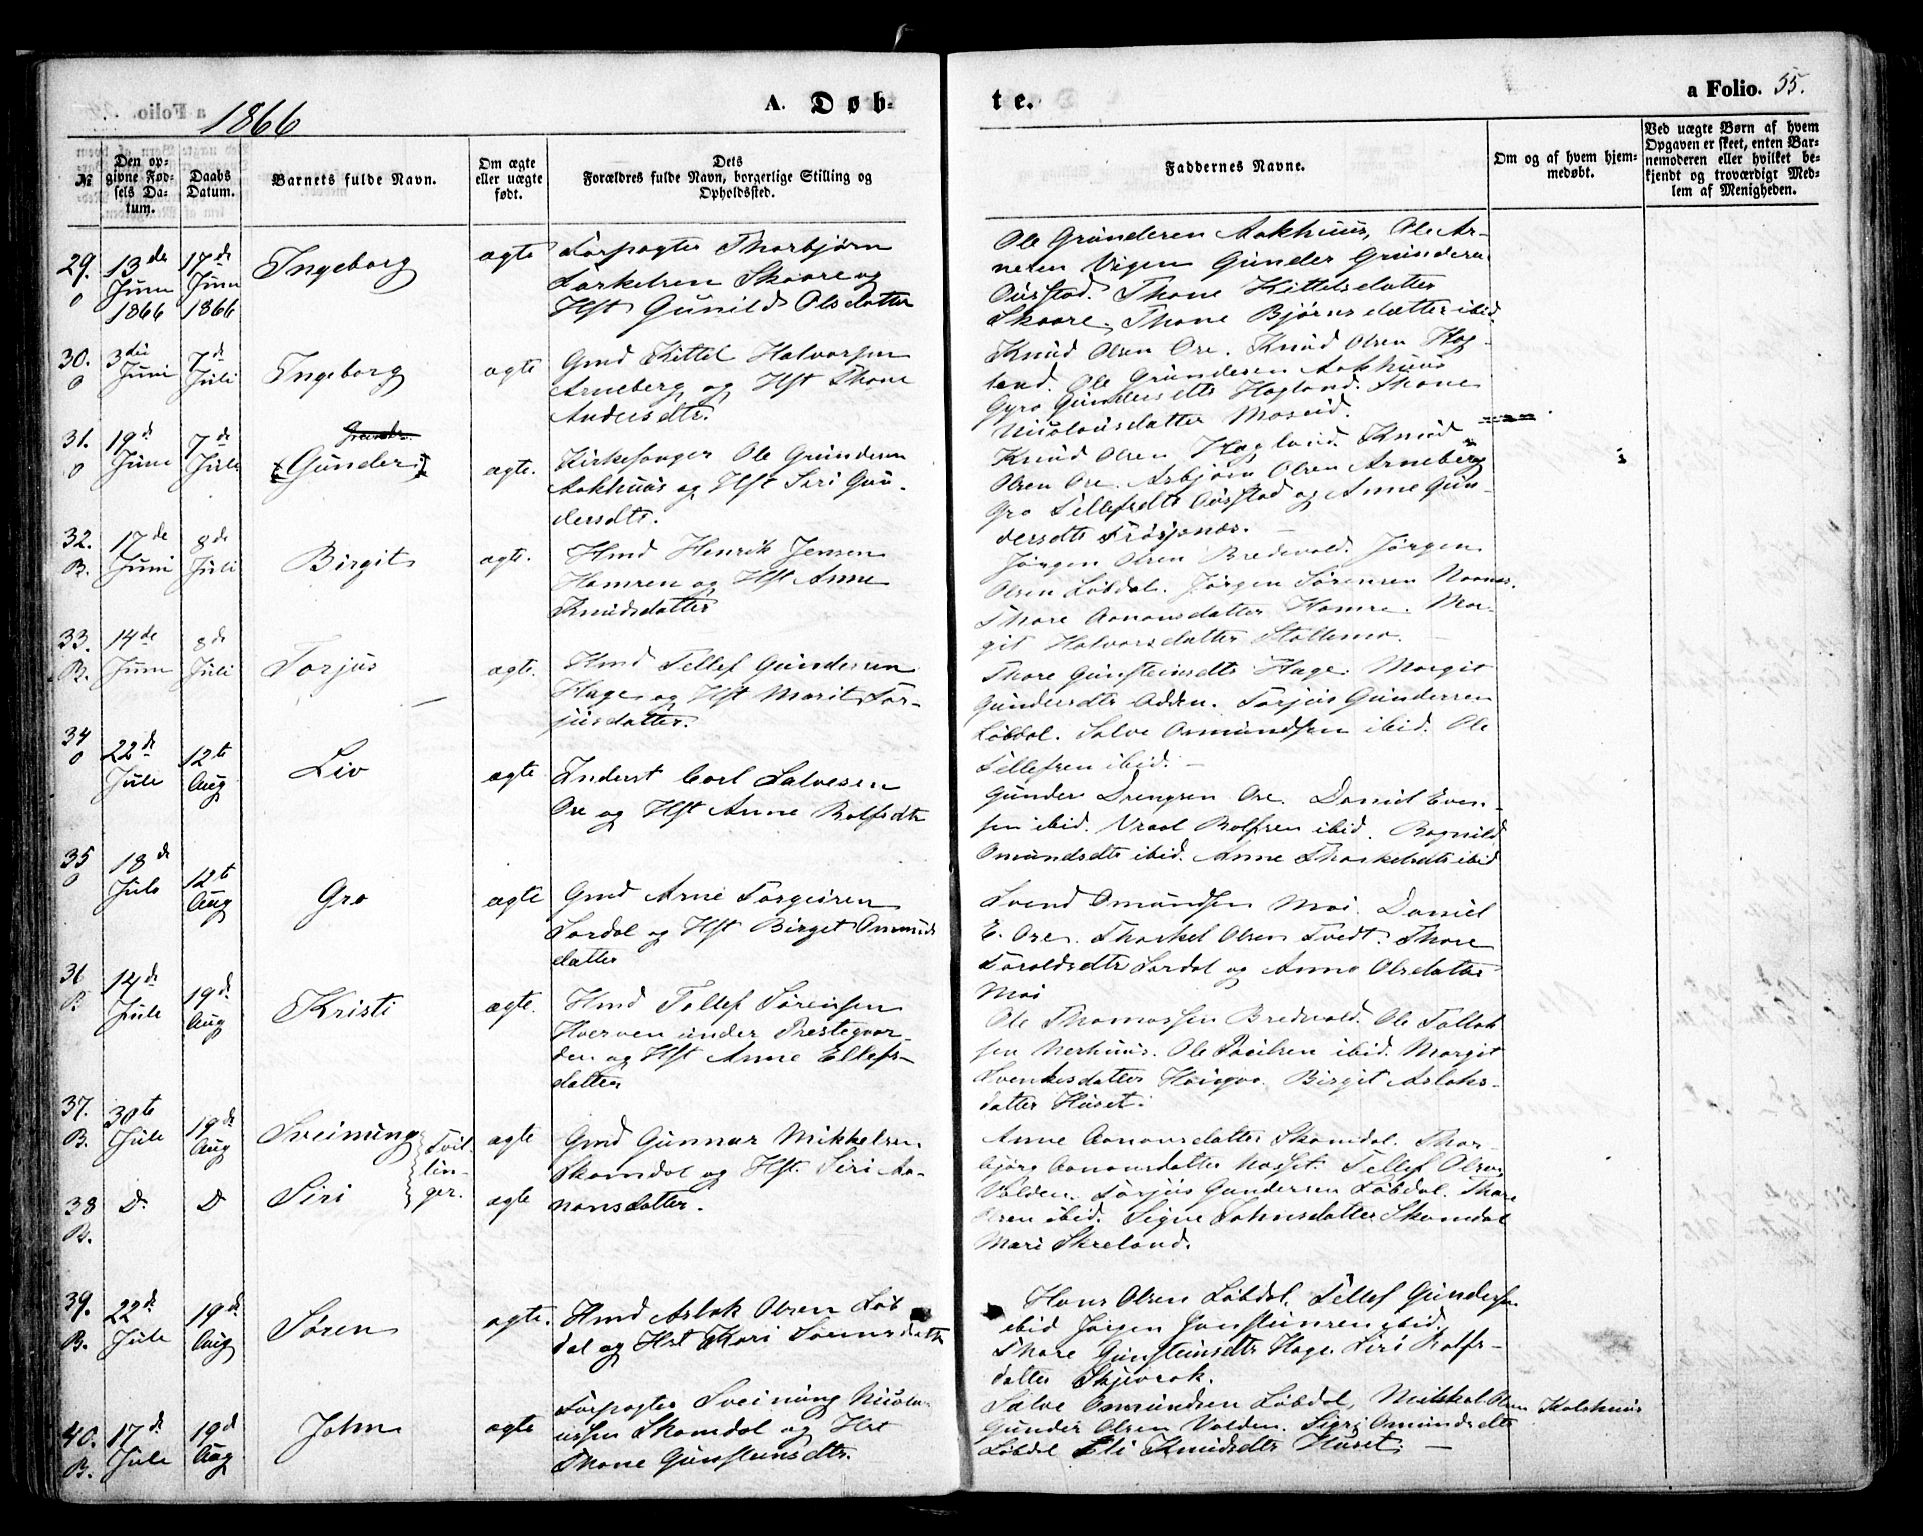 1866
A. Døb-
te.
a Folio. 55.
№
Den op-
givne Fød-
sels Da-
tum.
Daabs
Datum.
Barnets fulde Navn.
Om ægte
eller uægte
født.
Dets
Forældres fulde Navn, borgerlige Stilling og
Opholdssted.
Faddernes Navne.
Om og af hvem hjem-
medøbt.
Ved uægte Børn af hvem
Opgaven er skeet, enten Bar-
nemoderen eller hvilket be-
kjendt og troværdigt Med-
lem af Menigheden.
29.
O
13de
Juni
1866
17de
Juni
1866
Ingeborg
ægte
Forpagter Thorbjørn
Torkelsen Skaare og
Hst Gunild Olsdatter
Ole Gundersen Aakhuus, Ole Ar-
nesen Vigen Gunder Gundersen
Oustad. Thone Kittilsdatter
Skaare. Thone Bjørnsdatter ibid.
30.
O
3die
Juni
7de
Juli
Ingeborg
ægte
Gmd Kittil Halvorsen
Arneberg og Hst Thone
Andersdtr.
Knud Olsen Ore. Knud Olsen Hog-
land. Ole Gundersen Aakhuus
Gyro Gundersdtr Hogland. Thone
Nicolausdatter Moseid.
31.
O
19de
Juni
7de
Juli
Gunder
ægte.
Kirkesanger Ole Gundersen
Aakhuus og Hst Siri Gun-
dersdtr.
Knud Olsen Hogland. Knud
Olsen Ore. Asbjørn Olsen Arneberg
Gro Tellefsdtr Oustad og Anne Gun-
dersdtr Frøysnæs.
32.
B.
17de
Juni
8de
Juli
Birgit
ægte.
Hmd Henrik Jensen
Homren og Hst Anne
Knudsdatter
Jørgen Olsen Bredvold. Jørgen
Olsen Løbdal. Jørgen Sørensen Nomes.
Thore Aanonsdatter Homre. Mar-
git Halvorsdatter Stallemo.
33.
B.
14de
Juni
8de
Juli
Torjus
ægte.
Hmd Tellef Gundersen
Hage og Hst Marit Tor-
jusdatter.
Thore Gunsteinsdtr Hage. Margit
Gundersdtr Odden. Torjus Gundersen
Løbdal. Salve Omundsen ibid. Ole
Tellefsen ibid.
34
O
22de
Juli
12te
Aug
Liv
ægte
Inderst Carl Salvesen
Ore og Hst Anne Rolfsdtr
Gunder Drengsen Ore. Daniel Even-
sen ibid. Vraal Rolfsen ibid. Ragnild
Omundsdtr ibid. Anne Thorkelsdtr ibid
35
O
18de
Juli
12te
Aug
Gro
ægte
Gmd Arne Torgeirsen
Sordal og Hst Birget Omunds
datter
Svend Omundsen Moi. Daniel
E. Ore. Thorkel Olsen Tvedt. Thore
Taraldsdtr Sordal og Anne Olsdatter
Moi
36
B
14de
Juli
19de
Aug
Kristi
ægte.
Hmd Tellef Sørensen
Hverven under Prestegaar-
den og Hst Anne Ellefs-
datter
Ole Thomassen Bredvold. Ole Tallak
sen Nerhuus. Ole Poulsen ibid. Margit
Svenkesdatter Birgit Aslaks-
datter Huset.
37.
B.
30te
Juli
19de
Aug
Sveinung
Tvil-
lin-
ger.
ægte
Gmd Gunnar Mikkelsen
Skomdal og Hst. Siri Aa-
nonsdatter.
Anne Aanonsdatter Skomdal. Thor-
bjørg Aanonsdatter Tellef Olsen
Valden. Torjus Gundersen Løbdal. Thore
Olsen ibid. Signe Johnsdatter Skomdal
Mari Skreland.
38
B.
D.
D
Siri
ægte
39.
B.
22de
Juli
19de
Aug
Søren
ægte.
Hmd Aslak Olsen Løb
dal og Hst Kari Sørensdatter
Hans Olsen Løbdal. Tellef Gundersen
ibid Jørgen Gunsteinsen ibid.
Thore Gunsteinsdtr Hage. Siri Rolfs-
datter Skjevrak.
40.
B.
17de
Juli
19de
Aug
John
ægte
Forpagter Sveinung Nicola-
ussen Skomdal og Hst
Thone Gunsteinsdtr.
Salve Omundsen Løbdal, Mikkel Olsen Kolshuus
Gunder Olsen Valden. Sigri Omundsdtr
Løbdal Eli Knudsdtr Huset.